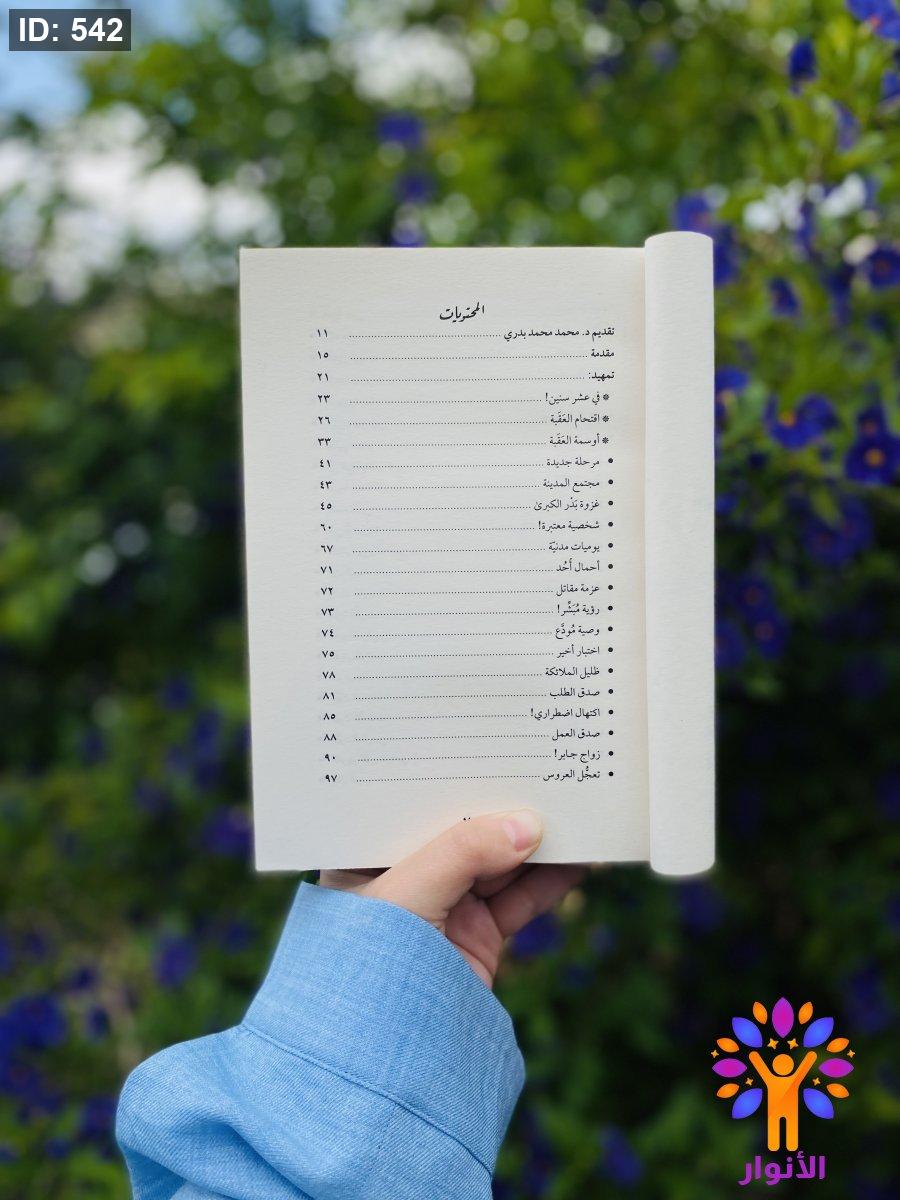 ID: 542
المحتويات
تقديم د. محمد محمد بدري ١١
مقدمة ١٥
تمهيد: ٢١
* في عشر سنين! ٢٣
* اقتحام العَقَبة ٢٦
* أوسمة العَقَبة ٣٣
• مرحلة جديدة ٤١
• مجتمع المدينة ٤٣
• غزوة بَدْر الكبرى ٤٥
• شخصية معتبرة! ٦٠
• يوميات مدنيّة ٦٧
• أحمال أُحُد ٧١
• عزمة مقاتل ٧٢
• رؤية مُبَشِّر! ٧٣
• وصية مُودَّع ٧٤
• اختبار أخير ٧٥
• ظليل الملائكة ٧٨
• صدق الطلب ٨١
• اكتهال اضطراري! ٨٥
• صدق العمل ٨٨
• زواج جابر! ٩٠
• تعجُّل العروس ٩٧
الأنوار